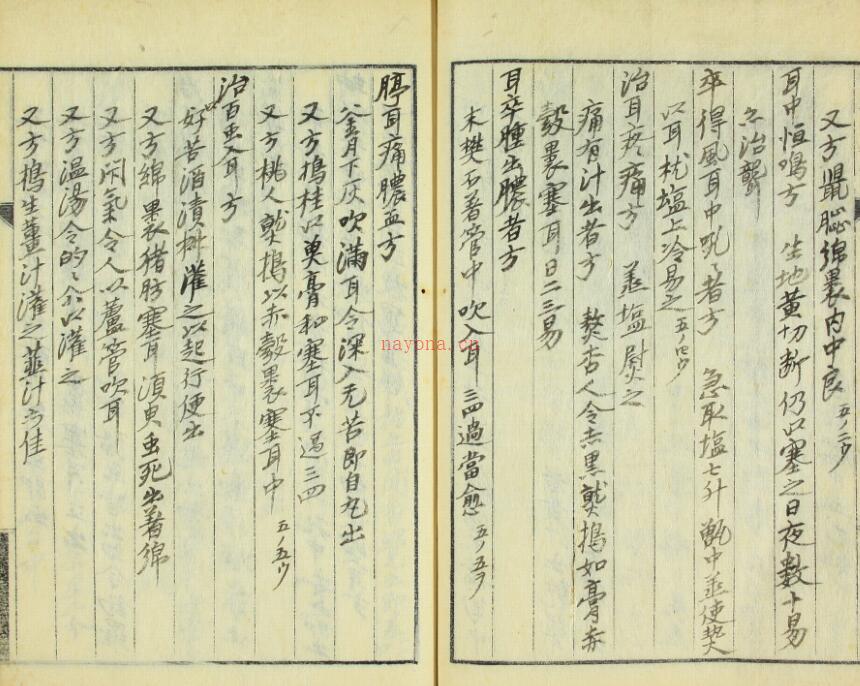 又方鼠𦛁綿裹内中良 五ノ二ウ
耳中恒鳴方 生地黄切断仍以塞之日夜数十易
亦治聾
卒得風耳中吼者方 急取塩七升甑中蒸使热
以耳枕塩上冷易之 五ノ四ウ
治耳疼痛方 蒸塩熨之
痛有汁出者方 熬杏人令赤黒熟搗如膏赤
縠裹塞耳日二三易
耳卒腫出膿者方
末礬石著管中吹入耳 三四過當愈 五ノ五ヲ
聤耳痛膿血方
釜月下灰吹满耳令深入无苦即自丸出
又方搗桂以魚膏和塞耳不過三四
又方桃人熟搗以赤縠裹塞耳中 五ノ五ウ
治百虫入耳方
好苦酒漬椒灌之以起行便出
又方綿裹猪肪塞耳須臾虫死出著綿
又方閇氣令人以蘆管吹耳
又方温湯令的々尓以灌之
又方搗生薑汁灌之韮汁亦佳
nayona.cn